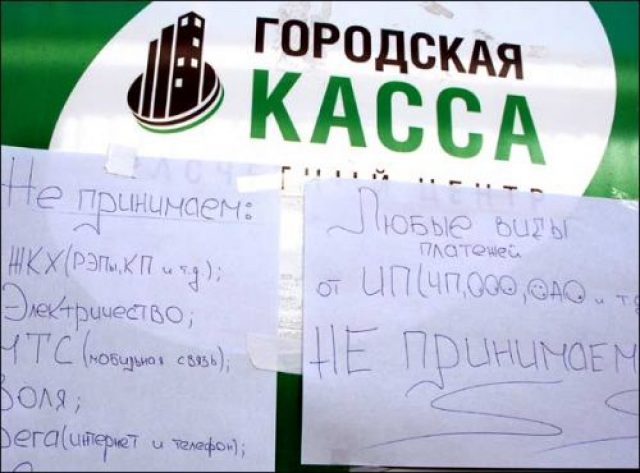 ГОРОДСКАЯ
КАССА
Не принимаем:
ЖКХ(РЭПы,КП и т.д.);
Электричество;
МТС (мобильная связь);
Воля;
(интернет и телефон);
Любые виды
платежей
от ИП(ЧП,ООО,ОАО и т
НЕ принимаем